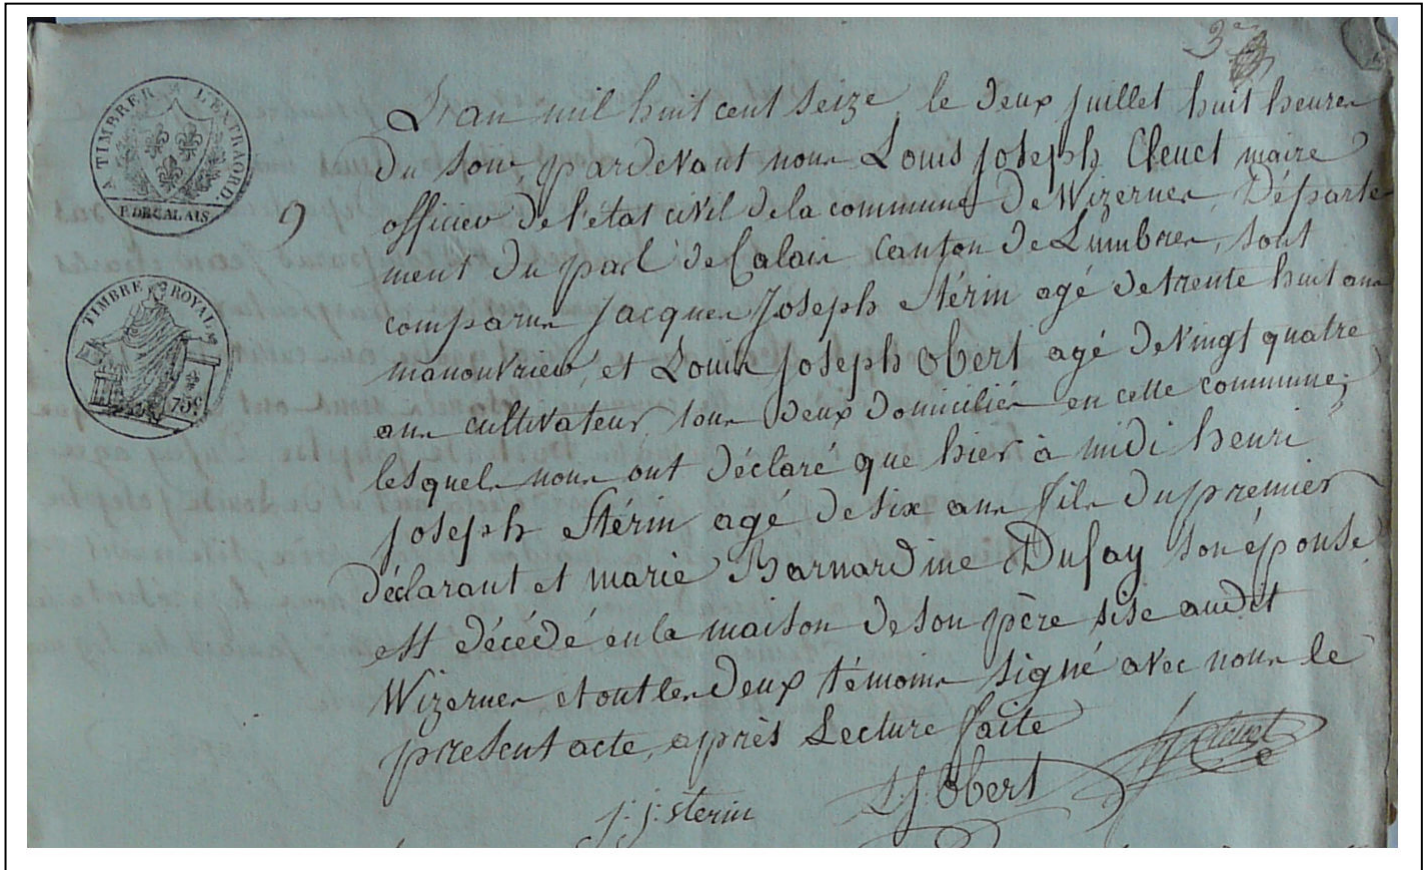 3e
A TIMBRER A L'EXTRAORD.
P. DE CALAIS.
TIMBRE ROYAL
75c
9
L'an mil huit cent seize le deux juillet huit heures
du soir, pardevant nous Louis Joseph Cleuet maire
officier de l'état civil de la commune de Wizernes, Départe
ment du pas de Calais Canton de Lumbres, sont
comparus Jacques Joseph Stérin agé de trente huit ans
manouvrier, et Louis Joseph Obert agé de vingt quatre
ans cultivateur, tous deux domiciliés en cette commune;
lesquels nous ont déclaré que hier à midi henri
joseph Stérin, agé de six ans fils du premier
déclarant et marie Barnardine Dufay son épouse
est décédé en la maison de son père sise audit
Wizernes et ont les deux témoins signé avec nous le
present acte, après Lecture faite
j. j. sterin L. J. Obert